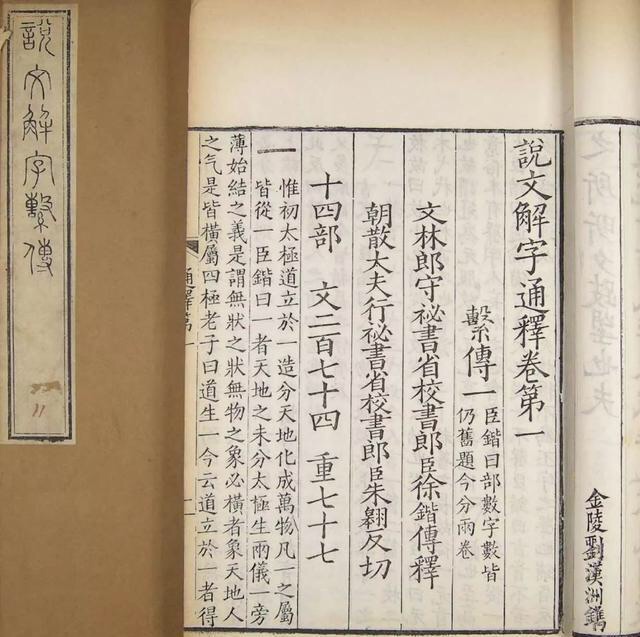 說文解字繫傳
之所昕夕跂望也夫
金陵劉漢洲鐫
說文解字通釋卷第一
繫傳一
臣鍇曰部數字數皆
仍舊題今分兩卷
文林郎守祕書省校書郎臣徐鍇傳釋
朝散大夫行祕書省校書郎臣朱翱反切
十四部 文二百七十四 重七十七
一
惟初太極道立於一造分天地化成萬物凡一之屬
皆從一臣鍇曰一者天地之未分太極生兩儀一旁
薄始結之義是謂無狀之狀無物之象必橫者象天地人
之气是皆橫屬四極老子曰道生一今云道立於一者得
通釋第一